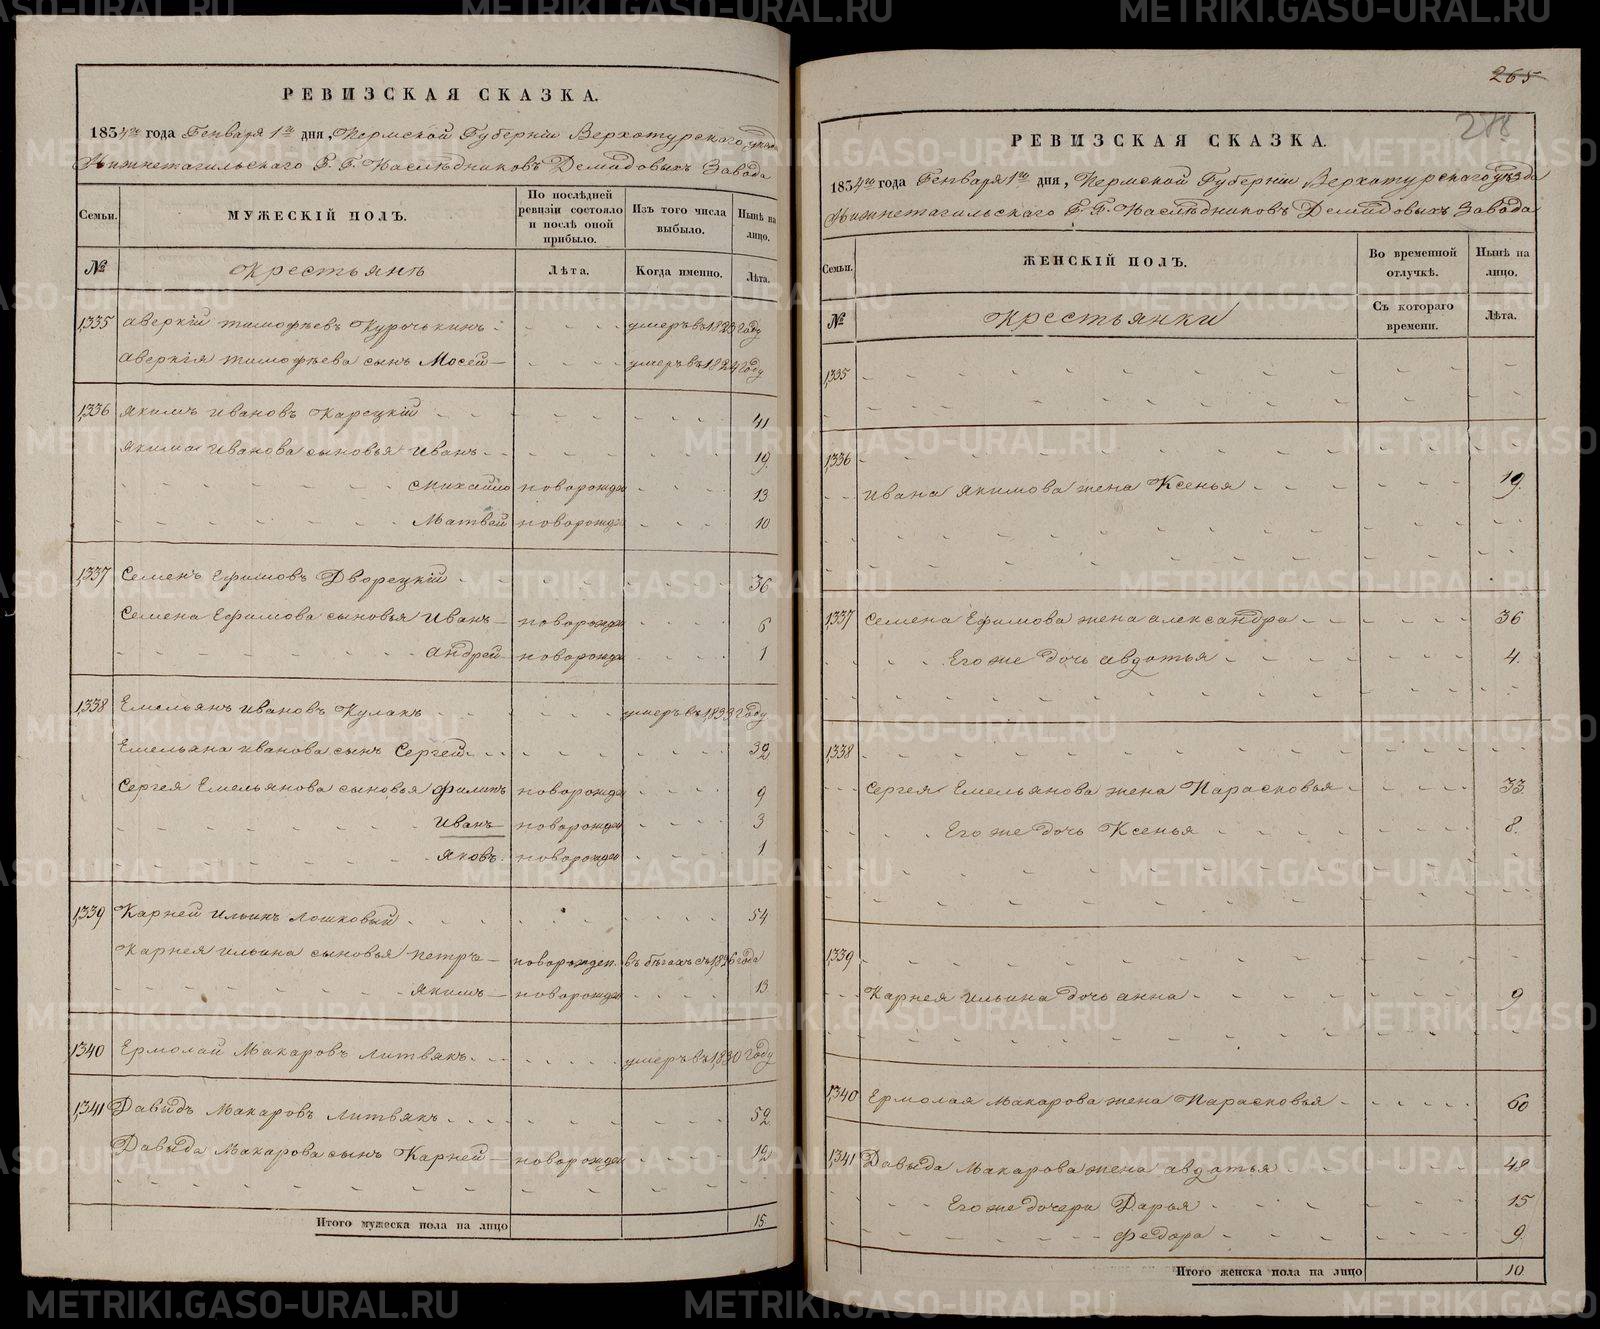 РЕВИЗСКАЯ СКАЗКА.
1834го года Генваря 1го дня, Пермской Губерніи Верхотурскаго уезда
Нижнетагильскаго Г. Г. Наслѣдниковъ Демидовыхъ Завода
Семьи.
МУЖЕСКІЙ ПОЛЪ.
По послѣдней ревизіи состояло и послѣ оной прибыло.
Изъ того числа выбыло.
Нынѣ на лицо.
№
Крестьянъ
Лѣта.
Когда именно.
Лѣта.
1335 Аверкій Тимофѣевъ Курочькинъ умеръ въ 1823 году
Аверкія Тимофѣева сынъ Мосей умеръ въ 1824 году
1336 Якимъ Ивановъ Карецкій 41
Якима Иванова сыновья Иванъ 19.
Михайло новорожден 13
Матвей новорожден 10
1337 Семенъ Ефимовъ Дворецкій 36
Семена Ефимова сыновья Иванъ новорожден 6
Андрей новорожден 1
1338 Емельянъ Ивановъ Кулакъ умеръ въ 1833 году
Емельяна Иванова сынъ Сергей 32
Сергея Емельянова сыновья Филипъ новорожден 9
Иванъ новорожден 3
Яковъ новорожден 1
1339 Карней Ильинъ Лошковый 54
Карнея Ильина сыновья Петръ новорожден. въ бѣгахъ съ 1826 года
Якимъ новорожден 13
1340 Ермолай Макаровъ Литвякъ умеръ въ 1830 году
1341 Давыдъ Макаровъ Литвякъ 52
Давыда Макарова сынъ Карней новорожден 12
Итого мужеска пола на лицо 15
265
288
РЕВИЗСКАЯ СКАЗКА.
1834го года Генваря 1го дня, Пермской Губерніи Верхотурскаго уѣзда
Нижнетагильскаго Г. Г. Наслѣдниковъ Демидовыхъ Завода
Семьи.
ЖЕНСКІЙ ПОЛЪ.
Во временной отлучкѣ.
Нынѣ на лицо.
№
Крестьянки
Съ котораго времени.
Лѣта.
1335
1336
Ивана Якимова жена Ксенья 19.
1337 Семена Ефимова жена Александра 36
Его же дочь Авдотья 4.
1338
Сергея Емельянова жена Парасковья 33
Его же дочь Ксенья 8.
1339
Карнея Ильина дочь Анна 9
1340 Ермолая Макарова жена Парасковья 60
1341 Давыда Макарова жена Авдотья 48
Его же дочери Дарья 15
Федора 9
Итого женска пола на лицо 10.
METRIKI.GASO-URAL.RU